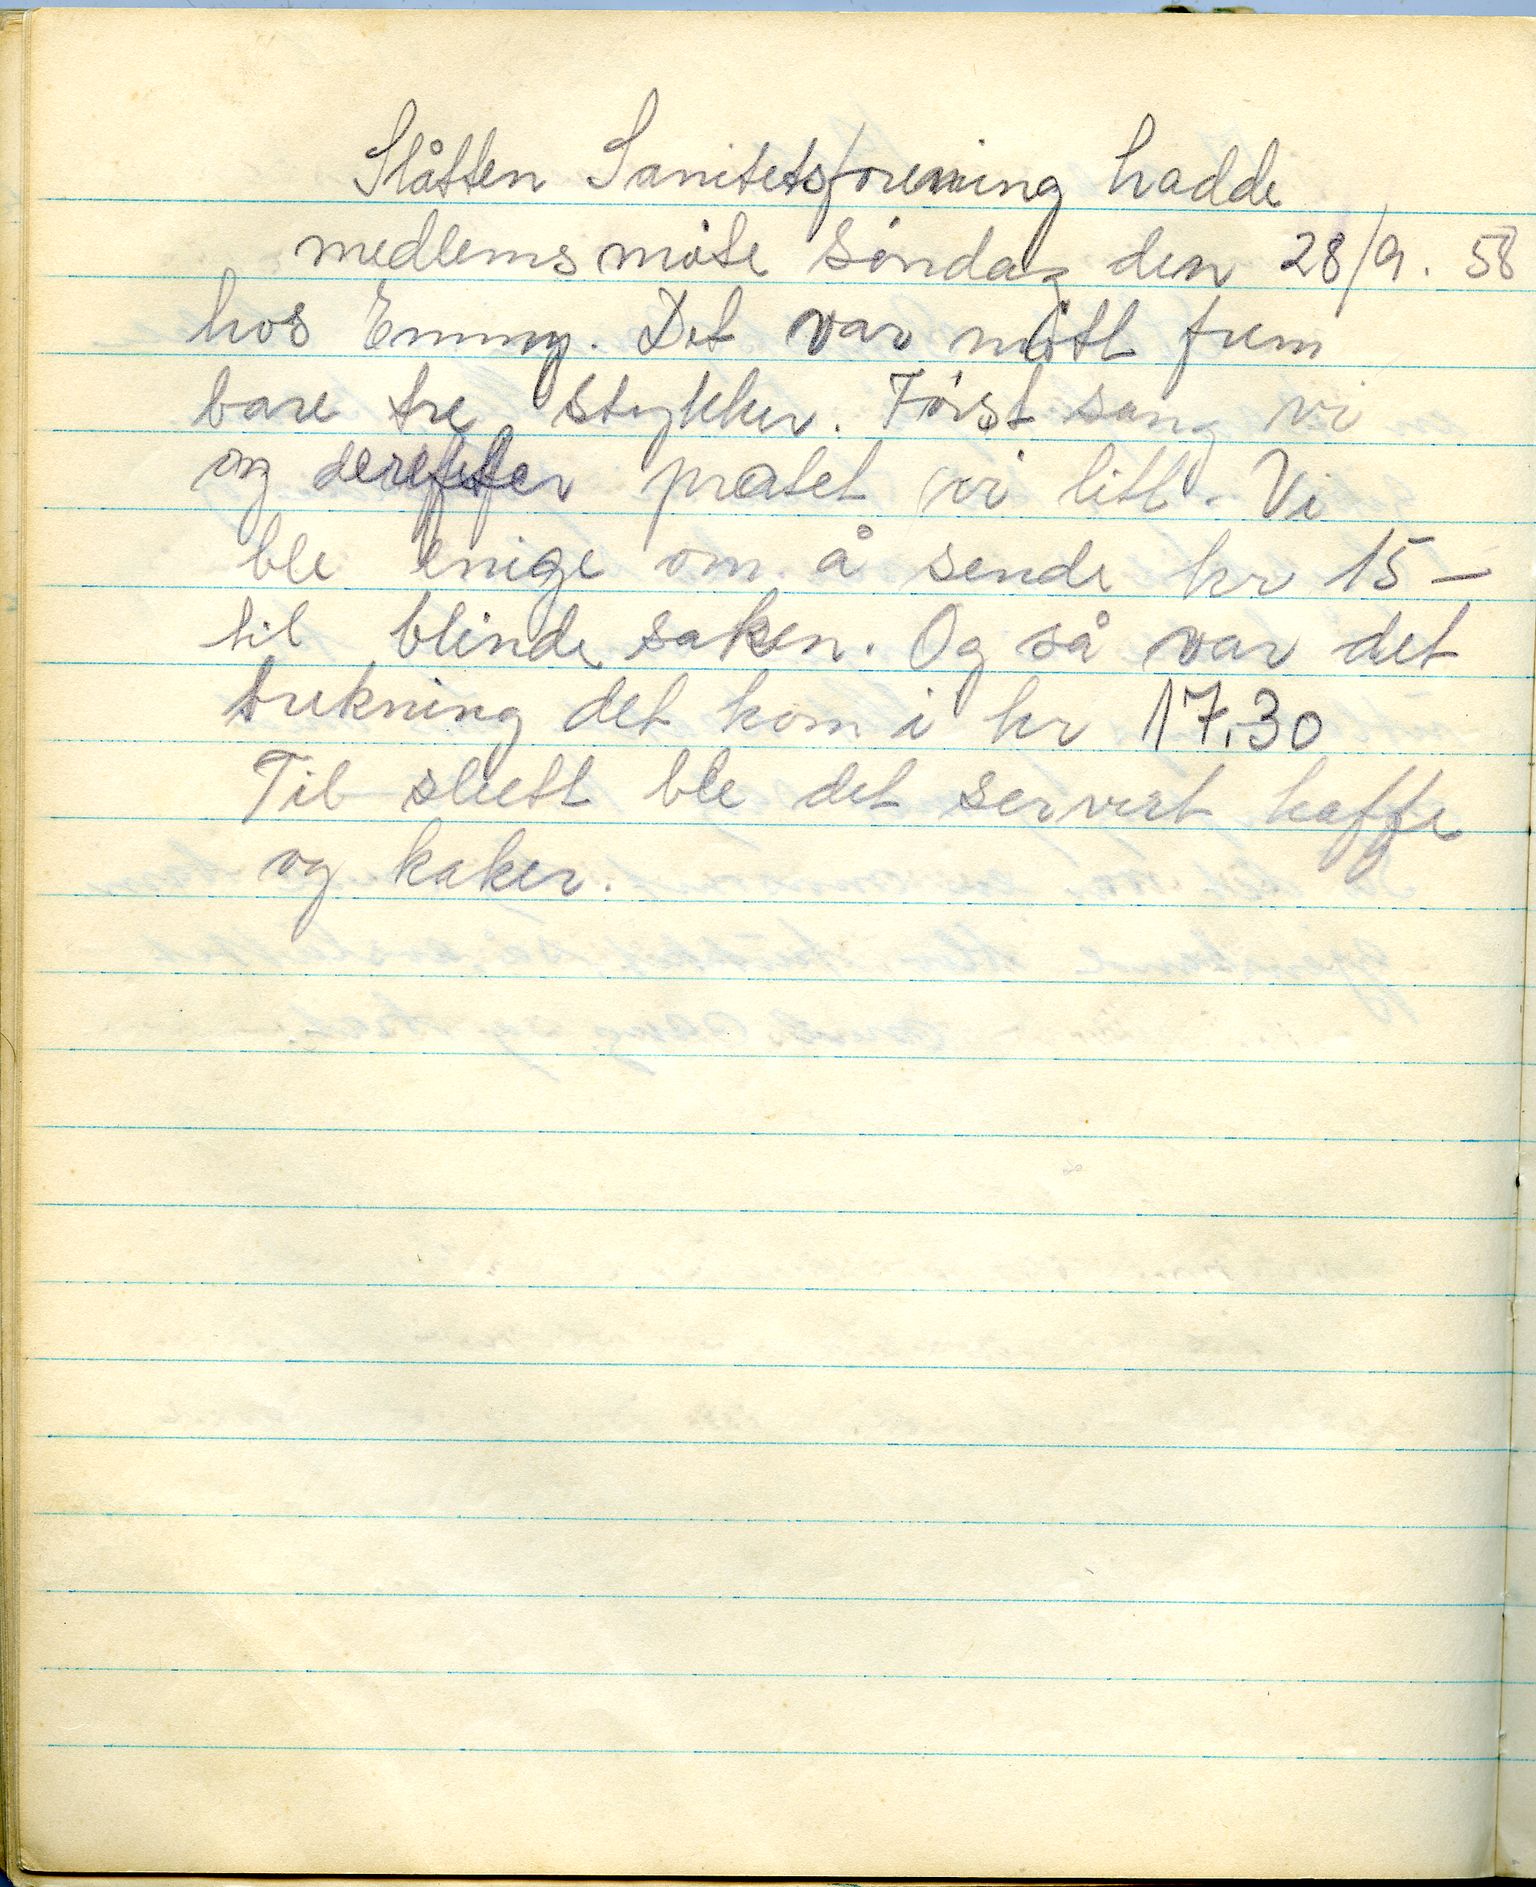 Slåtten Sanitetsforening hadde
medlemsmøte søndag den 28/9. 58
hos Emmy. Det var møtt frem
bare tre stykker. Først sang vi
og derefter pratet vi litt. Vi
ble enige om å sende kr 15-
til blinde saken. Og så var det
trekning det kom i kr 17.30
Til slutt ble det servert kaffe
og kaker.